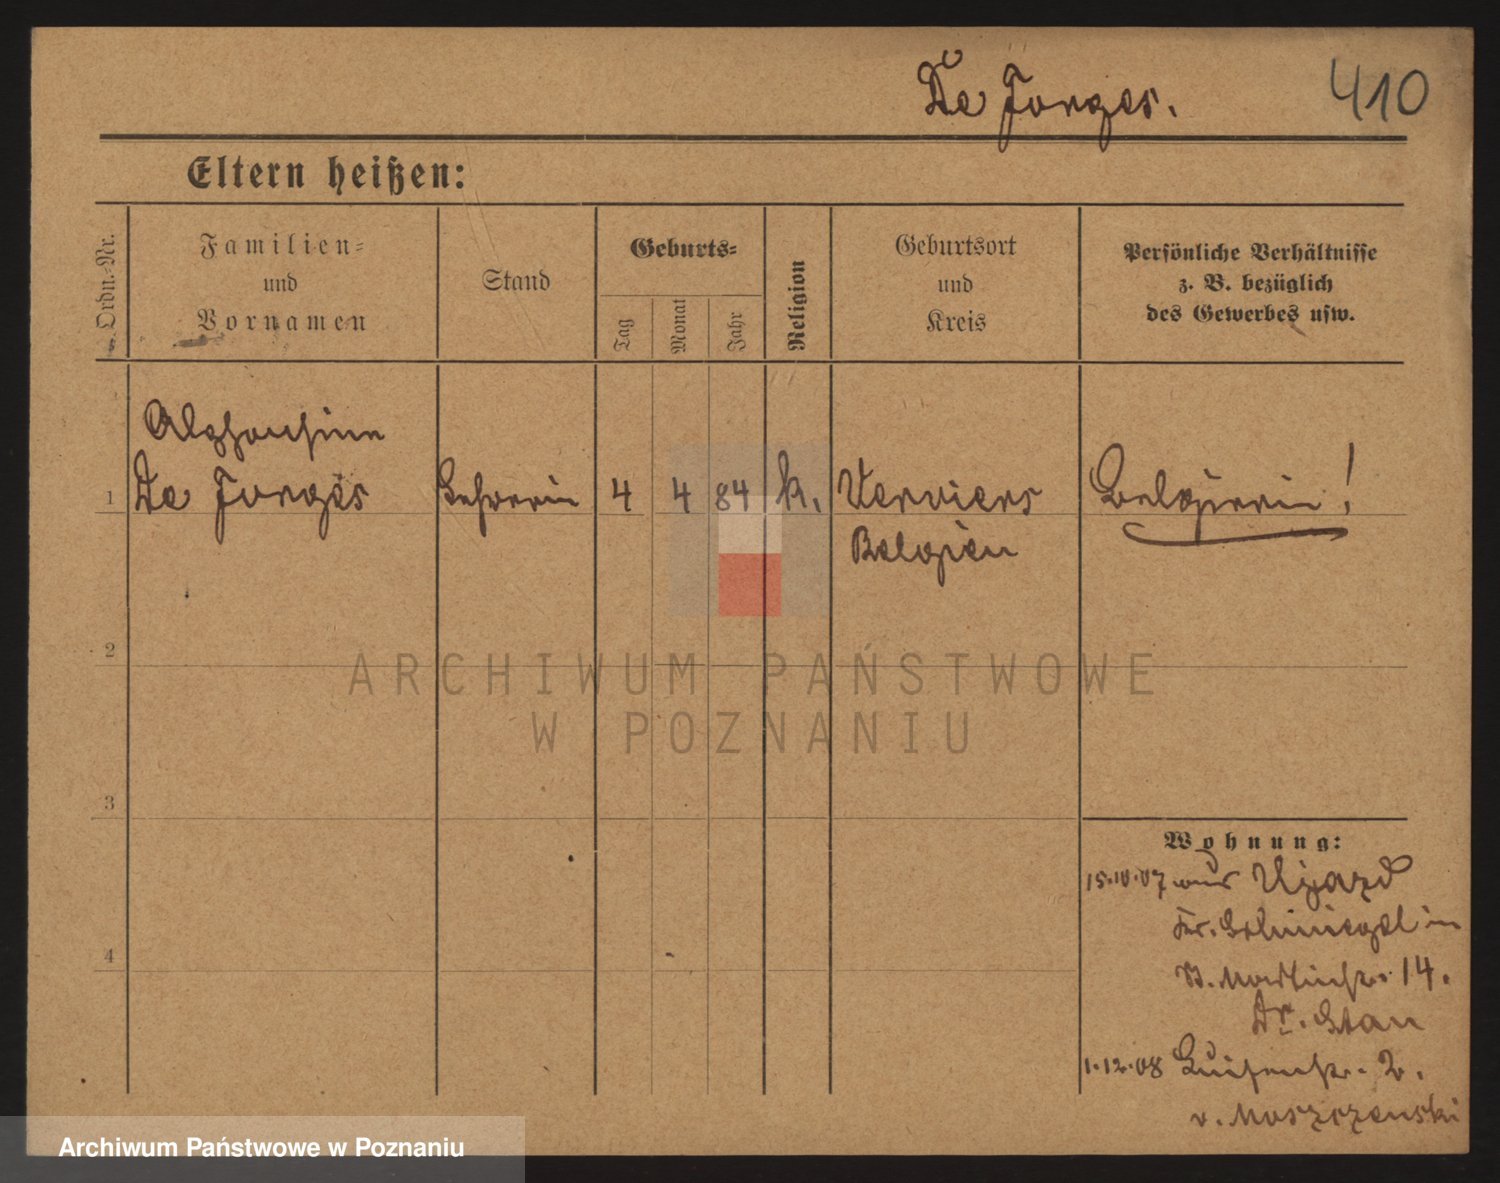 De Jorges.
410
Eltern heißen:
Ordn.-Nr.
Familien-
und
Vornamen
Stand
Geburts-
Tag
Monat
Jahr
Religion
Geburtsort
und
Kreis
Persönliche Verhältnisse
z. B. bezüglich
des Gewerbes usw.
Alphonsine
1 De Jorges Lehrerin 4 4 84 k. Verviers Belgierin!
Belgien
2
3
4
Wohnung:
15.10.07 aus Ujazd
Kr. Schmiegel in
St. Martinstr. 14.
Dr. Stan
1.12.08 Luisenstr. 2.
v. Moszczenski
ARCHIWUM PAŃSTWOWE
W POZNANIU
Archiwum Państwowe w Poznaniu